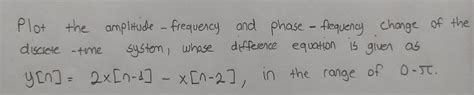 Plot the amplitude-frequency and phase-frequency change of the
discrete-time system, whose difference equation is given as
y[n] = 2x[n-1] - x[n-2], in the range of 0-π.